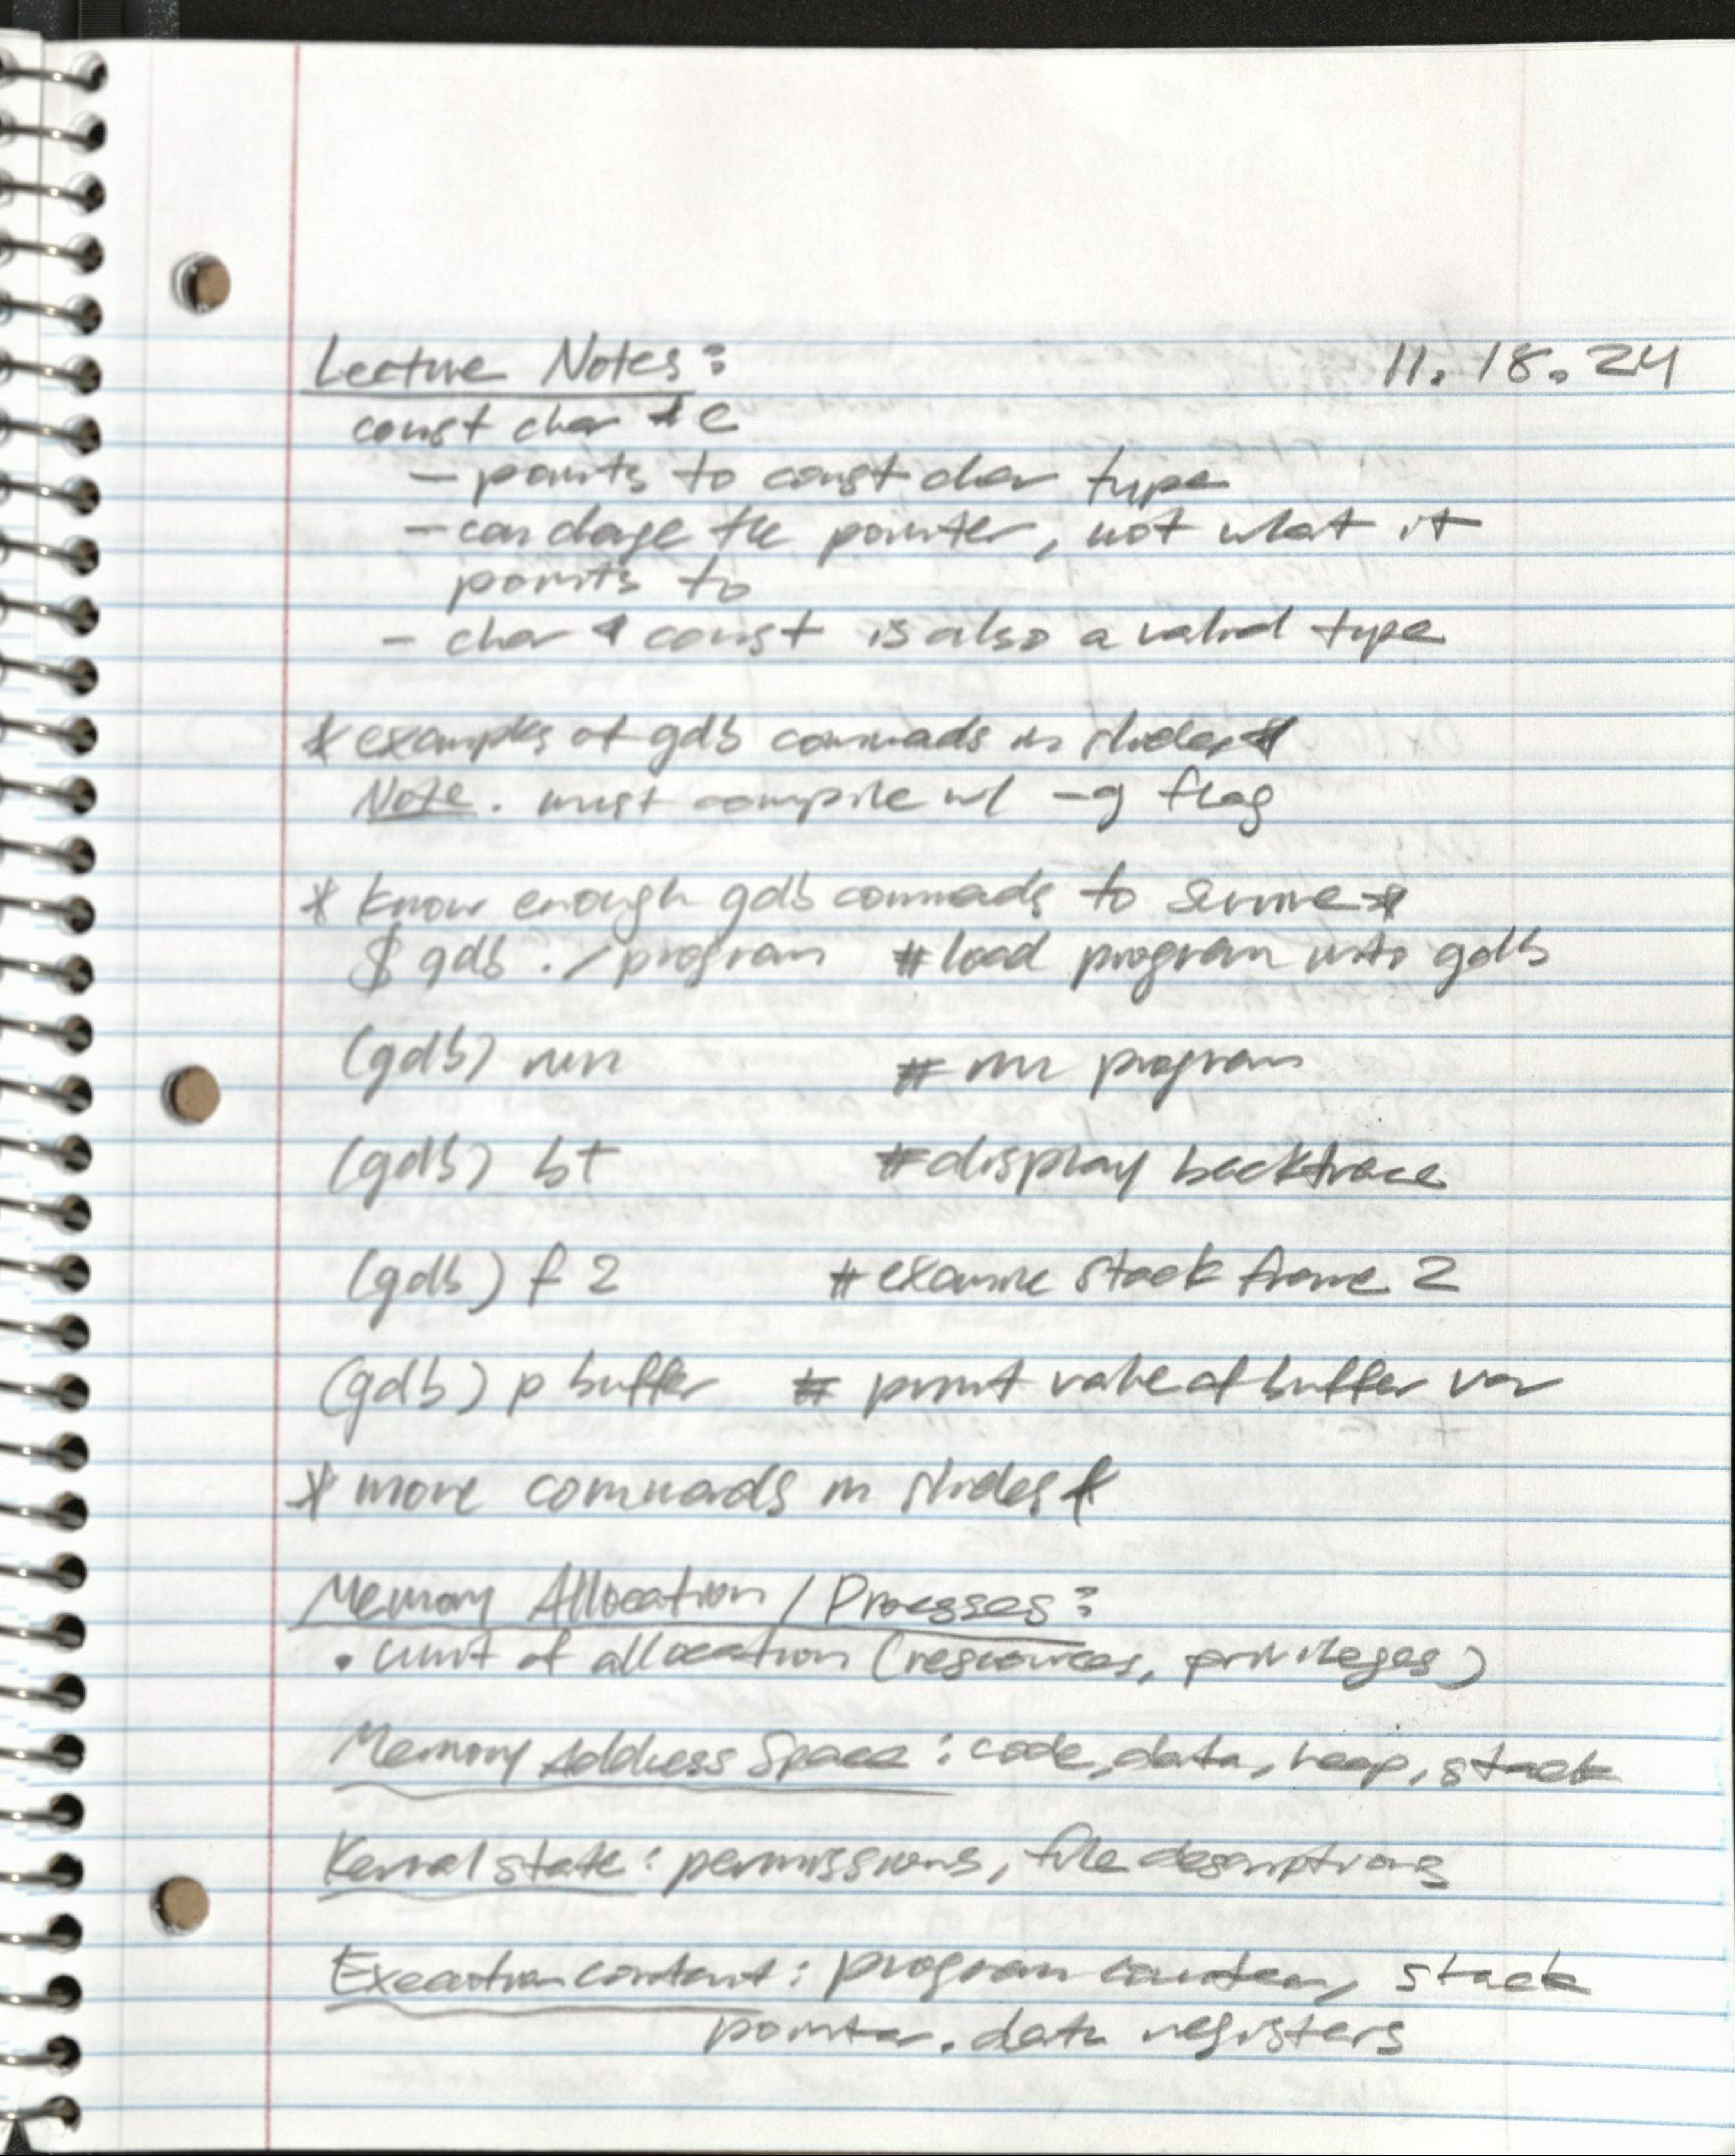 Lecture Notes: 11.18.24
const char * c
- points to const char type
- can change the pointer, not what it
points to
- char * const is also a valid type
* examples of gdb commands in slides *
Note. must compile w/ -g flag
* know enough gdb commands to survive *
$ gdb ./program # load program into gdb
(gdb) run # run program
(gdb) bt # display backtrace
(gdb) f 2 # examine stack frame 2
(gdb) p buffer # print value of buffer var
* more commands in slides *
Memory Allocation / Processes:
• unit of allocation (resources, privileges)
Memory Address Space: code, data, heap, stack
Kernal state: permissions, file descriptions
Execution context: program counter, stack
pointer, data registers